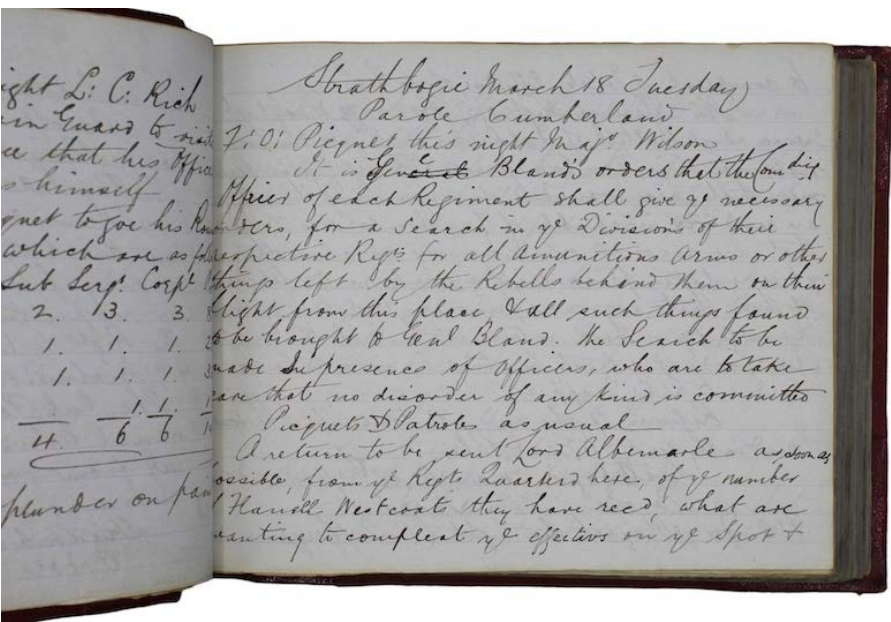 ight L: C: Rich
in Guard to visit
ee that his Offic
s himself
quet to goe his Ro
which are as fol
Sub Sergt. Corpl
2. 3. 3.
1. 1. 1.
1. 1. 1.
1. 1.
4. 6 6
plunder on pain
Strathbogie March 18 Tuesday
Parole Cumberland
F: O: Picquet this night Majr. Wilson
It is Genel Bland's orders that the Comdig
Officer of each Regiment shall give ye necessary
orders, for a Search in ye Divisions of their
respective Regts for all Amunitions Arms or other
things left by the Rebells behind them on their
flight from this place, & all such things found
to be brought to Genl Bland. The Search to be
made In presence of Officers, who are to take
care that no disorder of any kind is committed
Picquets & Patroles as usual
A return to be sent Lord Albemarle as soon as
ossible, from ye Regts Quarterd here, of ye number
Flanell Westcoats they have recd, what are
wanting to compleat ye effectivs on ye Spot &